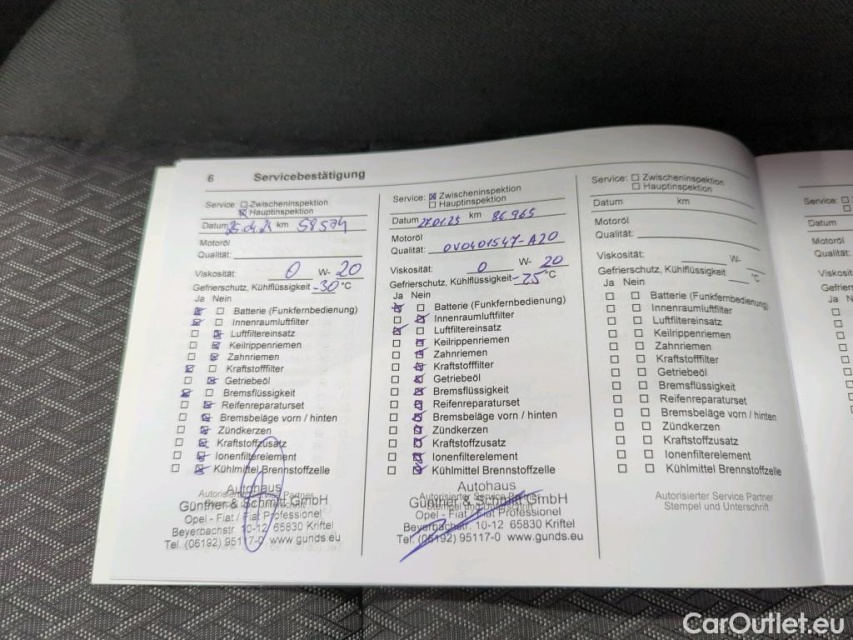 6 Servicebestätigung
Service: Zwischeninspektion
Hauptinspektion
Datum km 58574
Motoröl
Qualität:
Viskosität: 0 W- 20
Gefrierschutz, Kühlflüssigkeit -30 °C
Ja Nein
Batterie (Funkfernbedienung)
Innenraumluftfilter
Luftfiltereinsatz
Keilrippenriemen
Zahnriemen
Kraftstofffilter
Getriebeöl
Bremsflüssigkeit
Reifenreparaturset
Bremsbeläge vorn / hinten
Zündkerzen
Kraftstoffzusatz
Ionenfilterelement
Kühlmittel Brennstoffzelle
Autohaus
Günther & Schmitt GmbH
Opel - Fiat / Fiat Professionel
Beyerbachstr. 10-12 65830 Kriftel
Tel. (06192) 95117-0 www.gunds.eu
Service: Zwischeninspektion
Hauptinspektion
Datum 27.01.25 km 86.965
Motoröl
Qualität: OV0401547-A20
Viskosität: 0 W- 20
Gefrierschutz, Kühlflüssigkeit -25 °C
Ja Nein
Batterie (Funkfernbedienung)
Innenraumluftfilter
Luftfiltereinsatz
Keilrippenriemen
Zahnriemen
Kraftstofffilter
Getriebeöl
Bremsflüssigkeit
Reifenreparaturset
Bremsbeläge vorn / hinten
Zündkerzen
Kraftstoffzusatz
Ionenfilterelement
Kühlmittel Brennstoffzelle
Autohaus
Günther & Schmitt GmbH
Opel - Fiat / Fiat Professionel
Beyerbachstr. 10-12 65830 Kriftel
Tel. (06192) 95117-0 www.gunds.eu
Service: Zwischeninspektion
Hauptinspektion
Datum km
Motoröl
Qualität:
Viskosität: W-
Gefrierschutz, Kühlflüssigkeit °C
Ja Nein
Batterie (Funkfernbedienung)
Innenraumluftfilter
Luftfiltereinsatz
Keilrippenriemen
Zahnriemen
Kraftstofffilter
Getriebeöl
Bremsflüssigkeit
Reifenreparaturset
Bremsbeläge vorn / hinten
Zündkerzen
Kraftstoffzusatz
Ionenfilterelement
Kühlmittel Brennstoffzelle
Autorisierter Service Partner
Stempel und Unterschrift
Service:
Datum
Motoröl
Qualität:
Ja
CarOutlet.eu